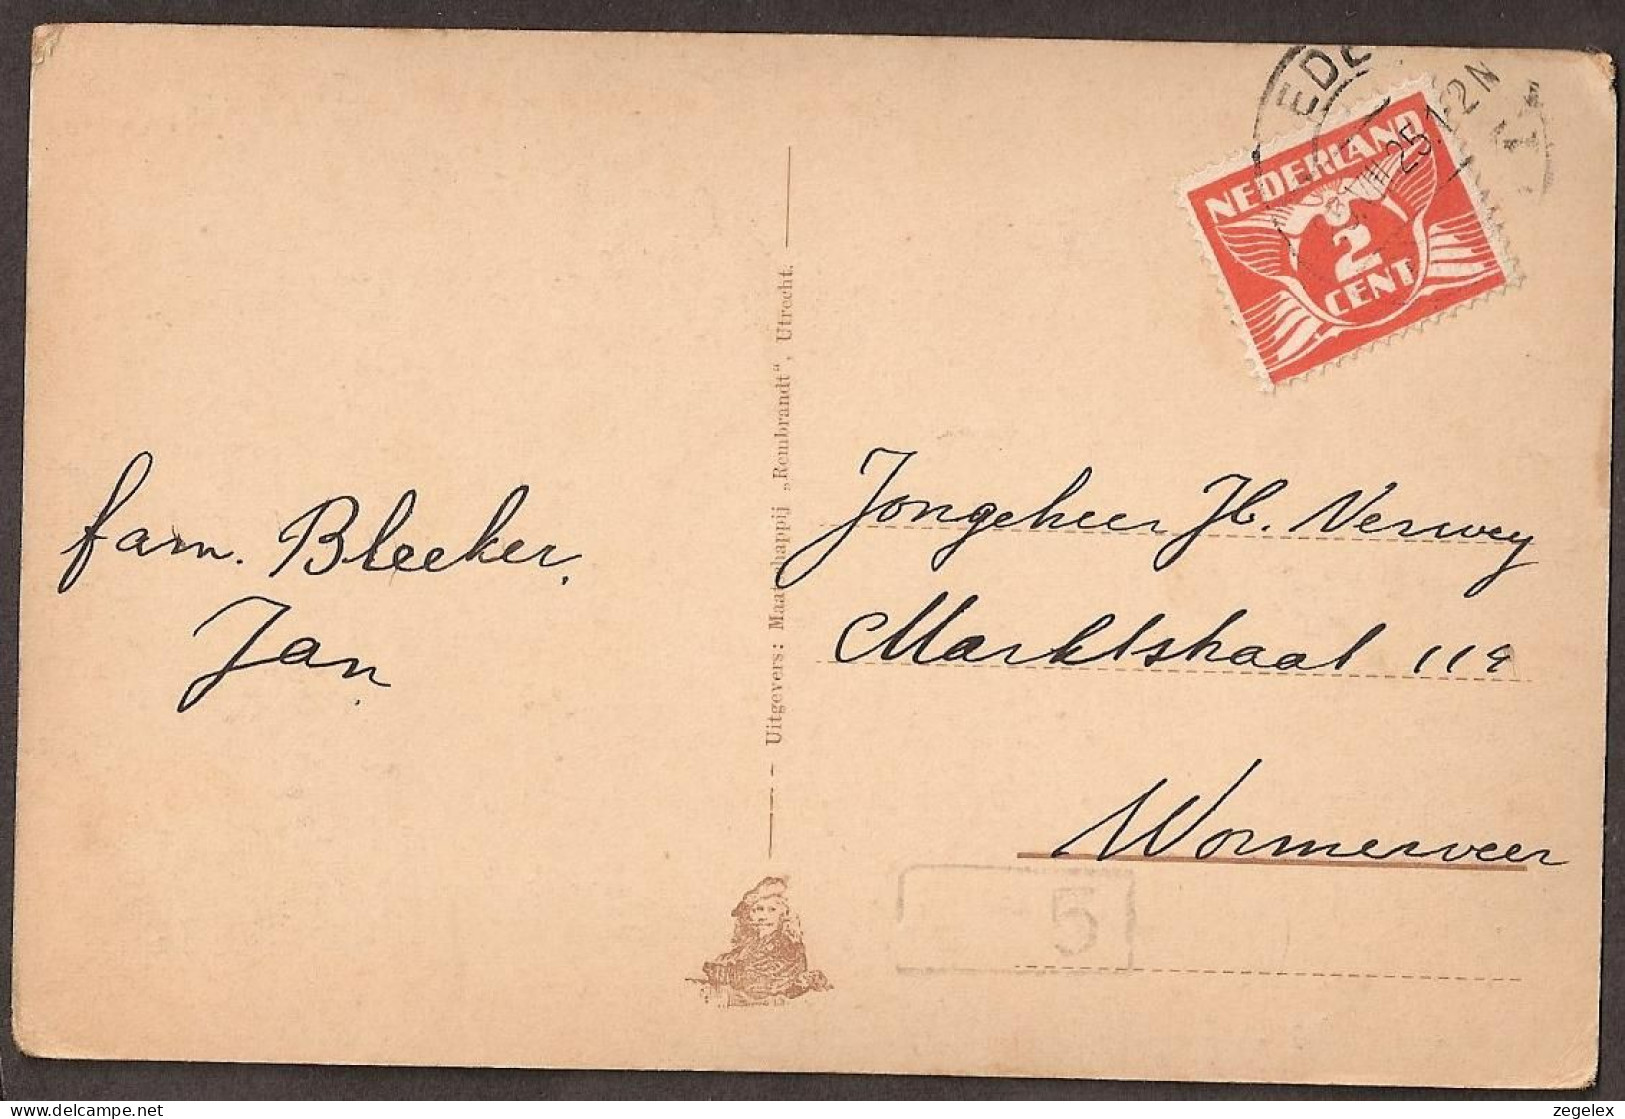 EDE
VIII 25.1-2N
NEDERLAND
2
CENT
fam. Bleeker.
Jan.
Uitgevers: Maatschappij „Rembrandt", Utrecht.
Jongeheer Jb. Verwey
Marktstraat 119
Wormerveer
5
zegelex
www.delcampe.net